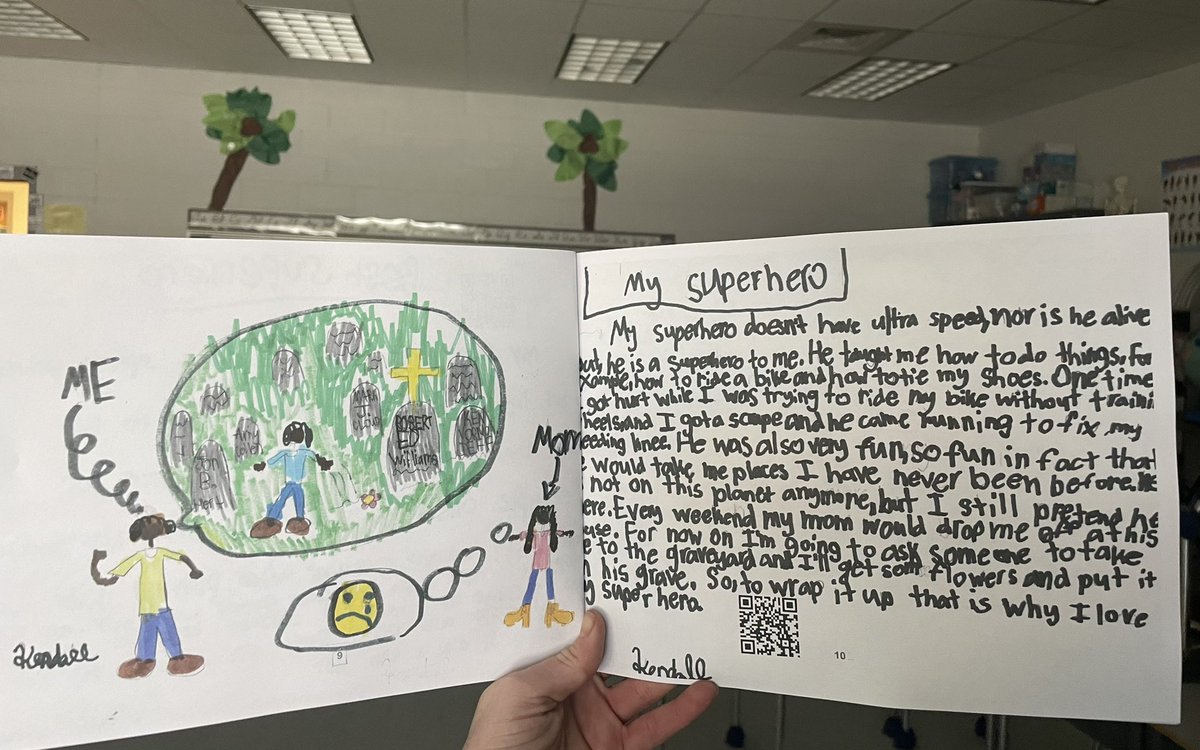 ME
ROBERT
ED
Williams
Mom
Kendall
9
My superhero
My superhero doesn't have ultra speed, nor is he alive
but, he is a superhero to me. He taught me how to do things, For
xample, how to ride a bike and how to tie my shoes. One time
got hurt while I was trying to ride my bike without traini
heels and I got a scape and he came running to fix my
eeding knee. He was also very fun, so fun in fact that
e would take me places I have never been before.
not on this planet anymore, but I still pretend he
ere. Every weekend my mom would drop me off at his
use. For now on I'm going to ask someone to take
e to the graveyard and I'll get some flowers and put it
n his grave. So, to wrap it up that is why I love
y super hero.
Kendall
10